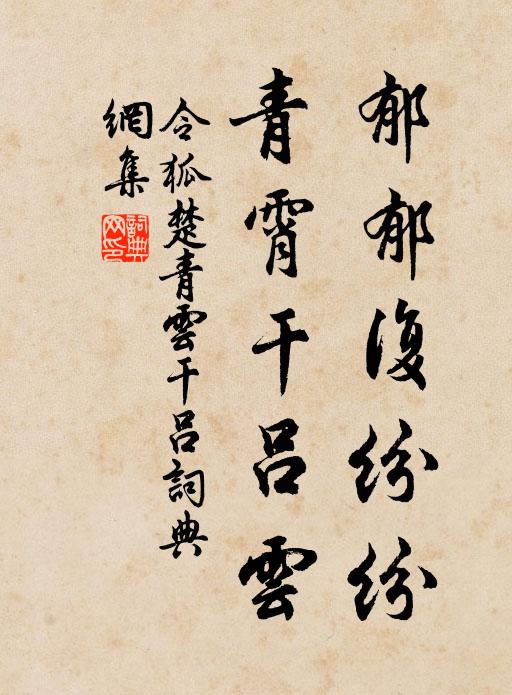 郁郁復紛紛
青霄干呂雲
令狐楚青雲干呂詞典
網集
詞典網印